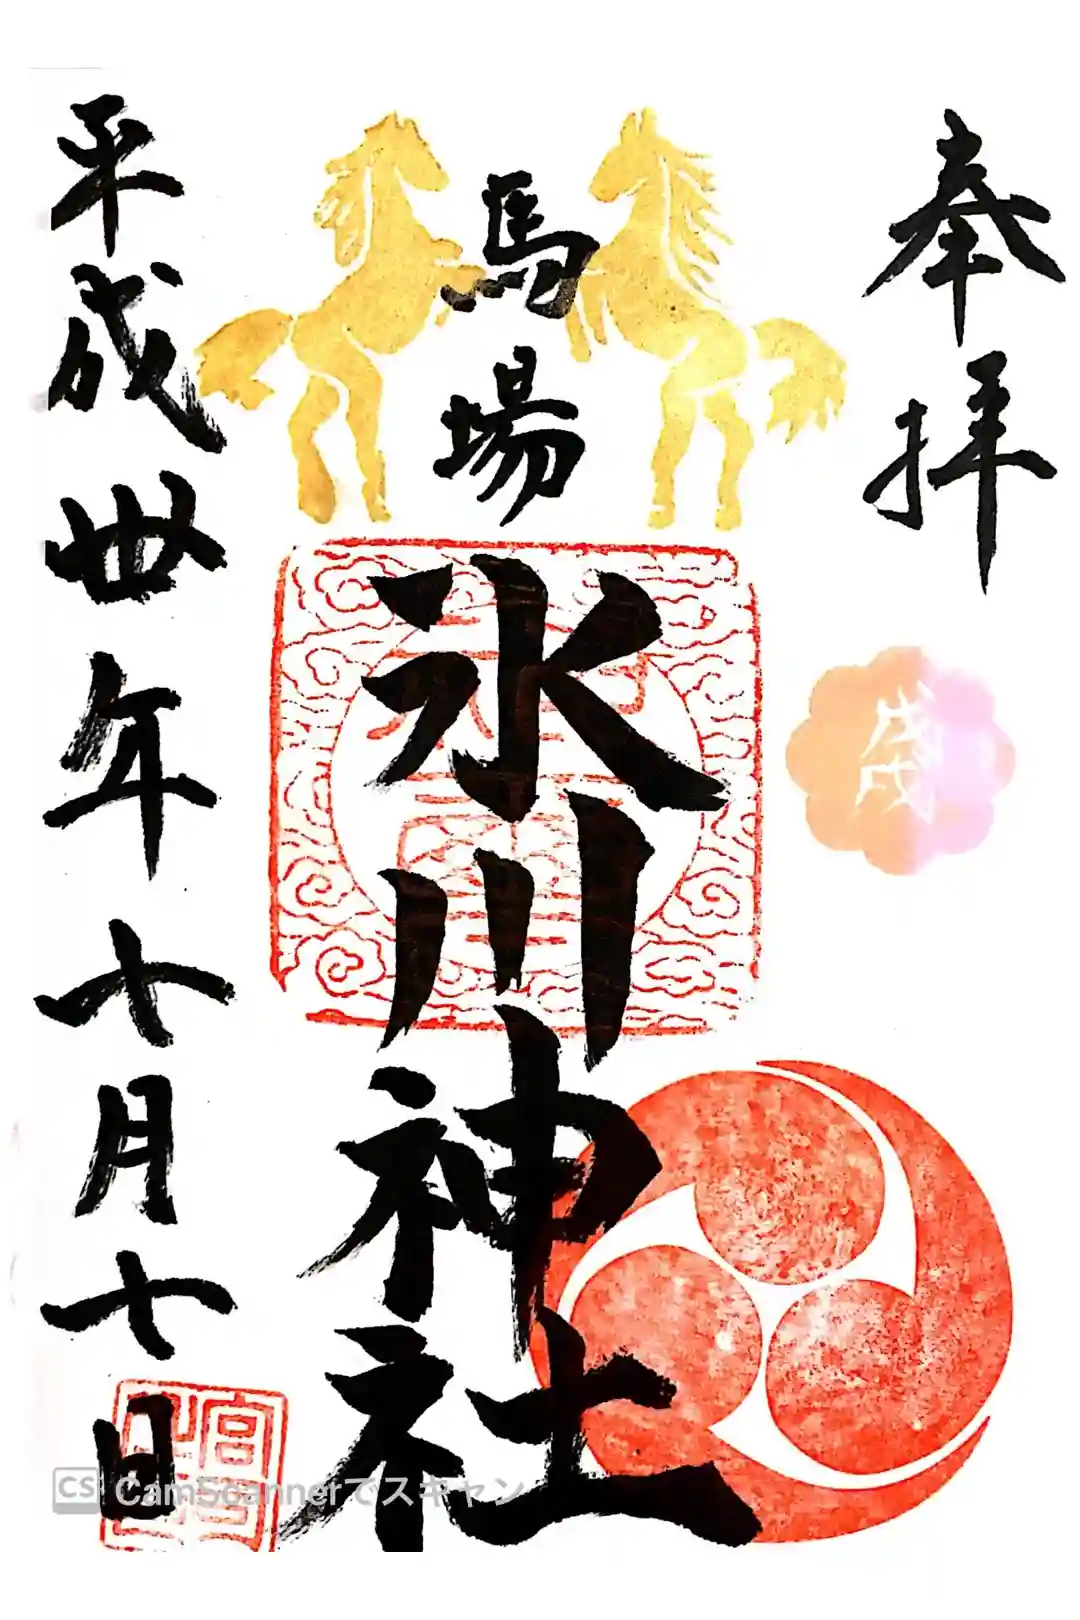 奉拝
馬場
氷川神社
平成卅年十月十日
CS CamScannerでスキャン